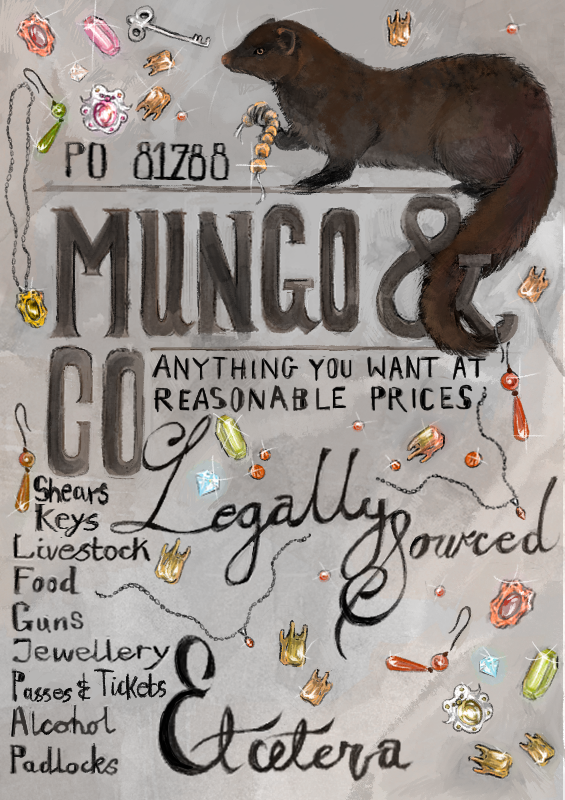 PO 81288
MUNGO &
CO
ANYTHING YOU WANT AT
REASONABLE PRICES.
Legally
Sourced
Shears
Keys
Livestock
Food
Guns
Jewellery
Passes & Tickets
Alcohol
Padlocks
Etcetera